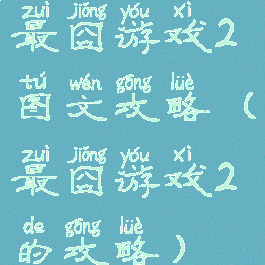 zuì jiǒng yóu xì
最囧游戏2
tú wén gōng lüè
图文攻略（
zuì jiǒng yóu xì
最囧游戏2
de gōng lüè
的攻略）